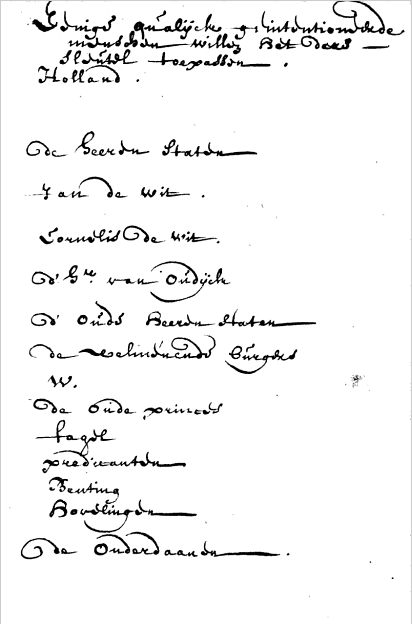 Eenige qualijck geintentioneerde
menschen willen het dees
sleutel toepassen.
Holland.
de Heeren Staten
Jan de wit.
Cornelis de wit.
d'Hr. van Oudijck
d' Oude Heeren Staten
de welmenende burgers
W.
de oude princes
fagel
predicanten
Benting
Hovelingen
de Onderdaanen.